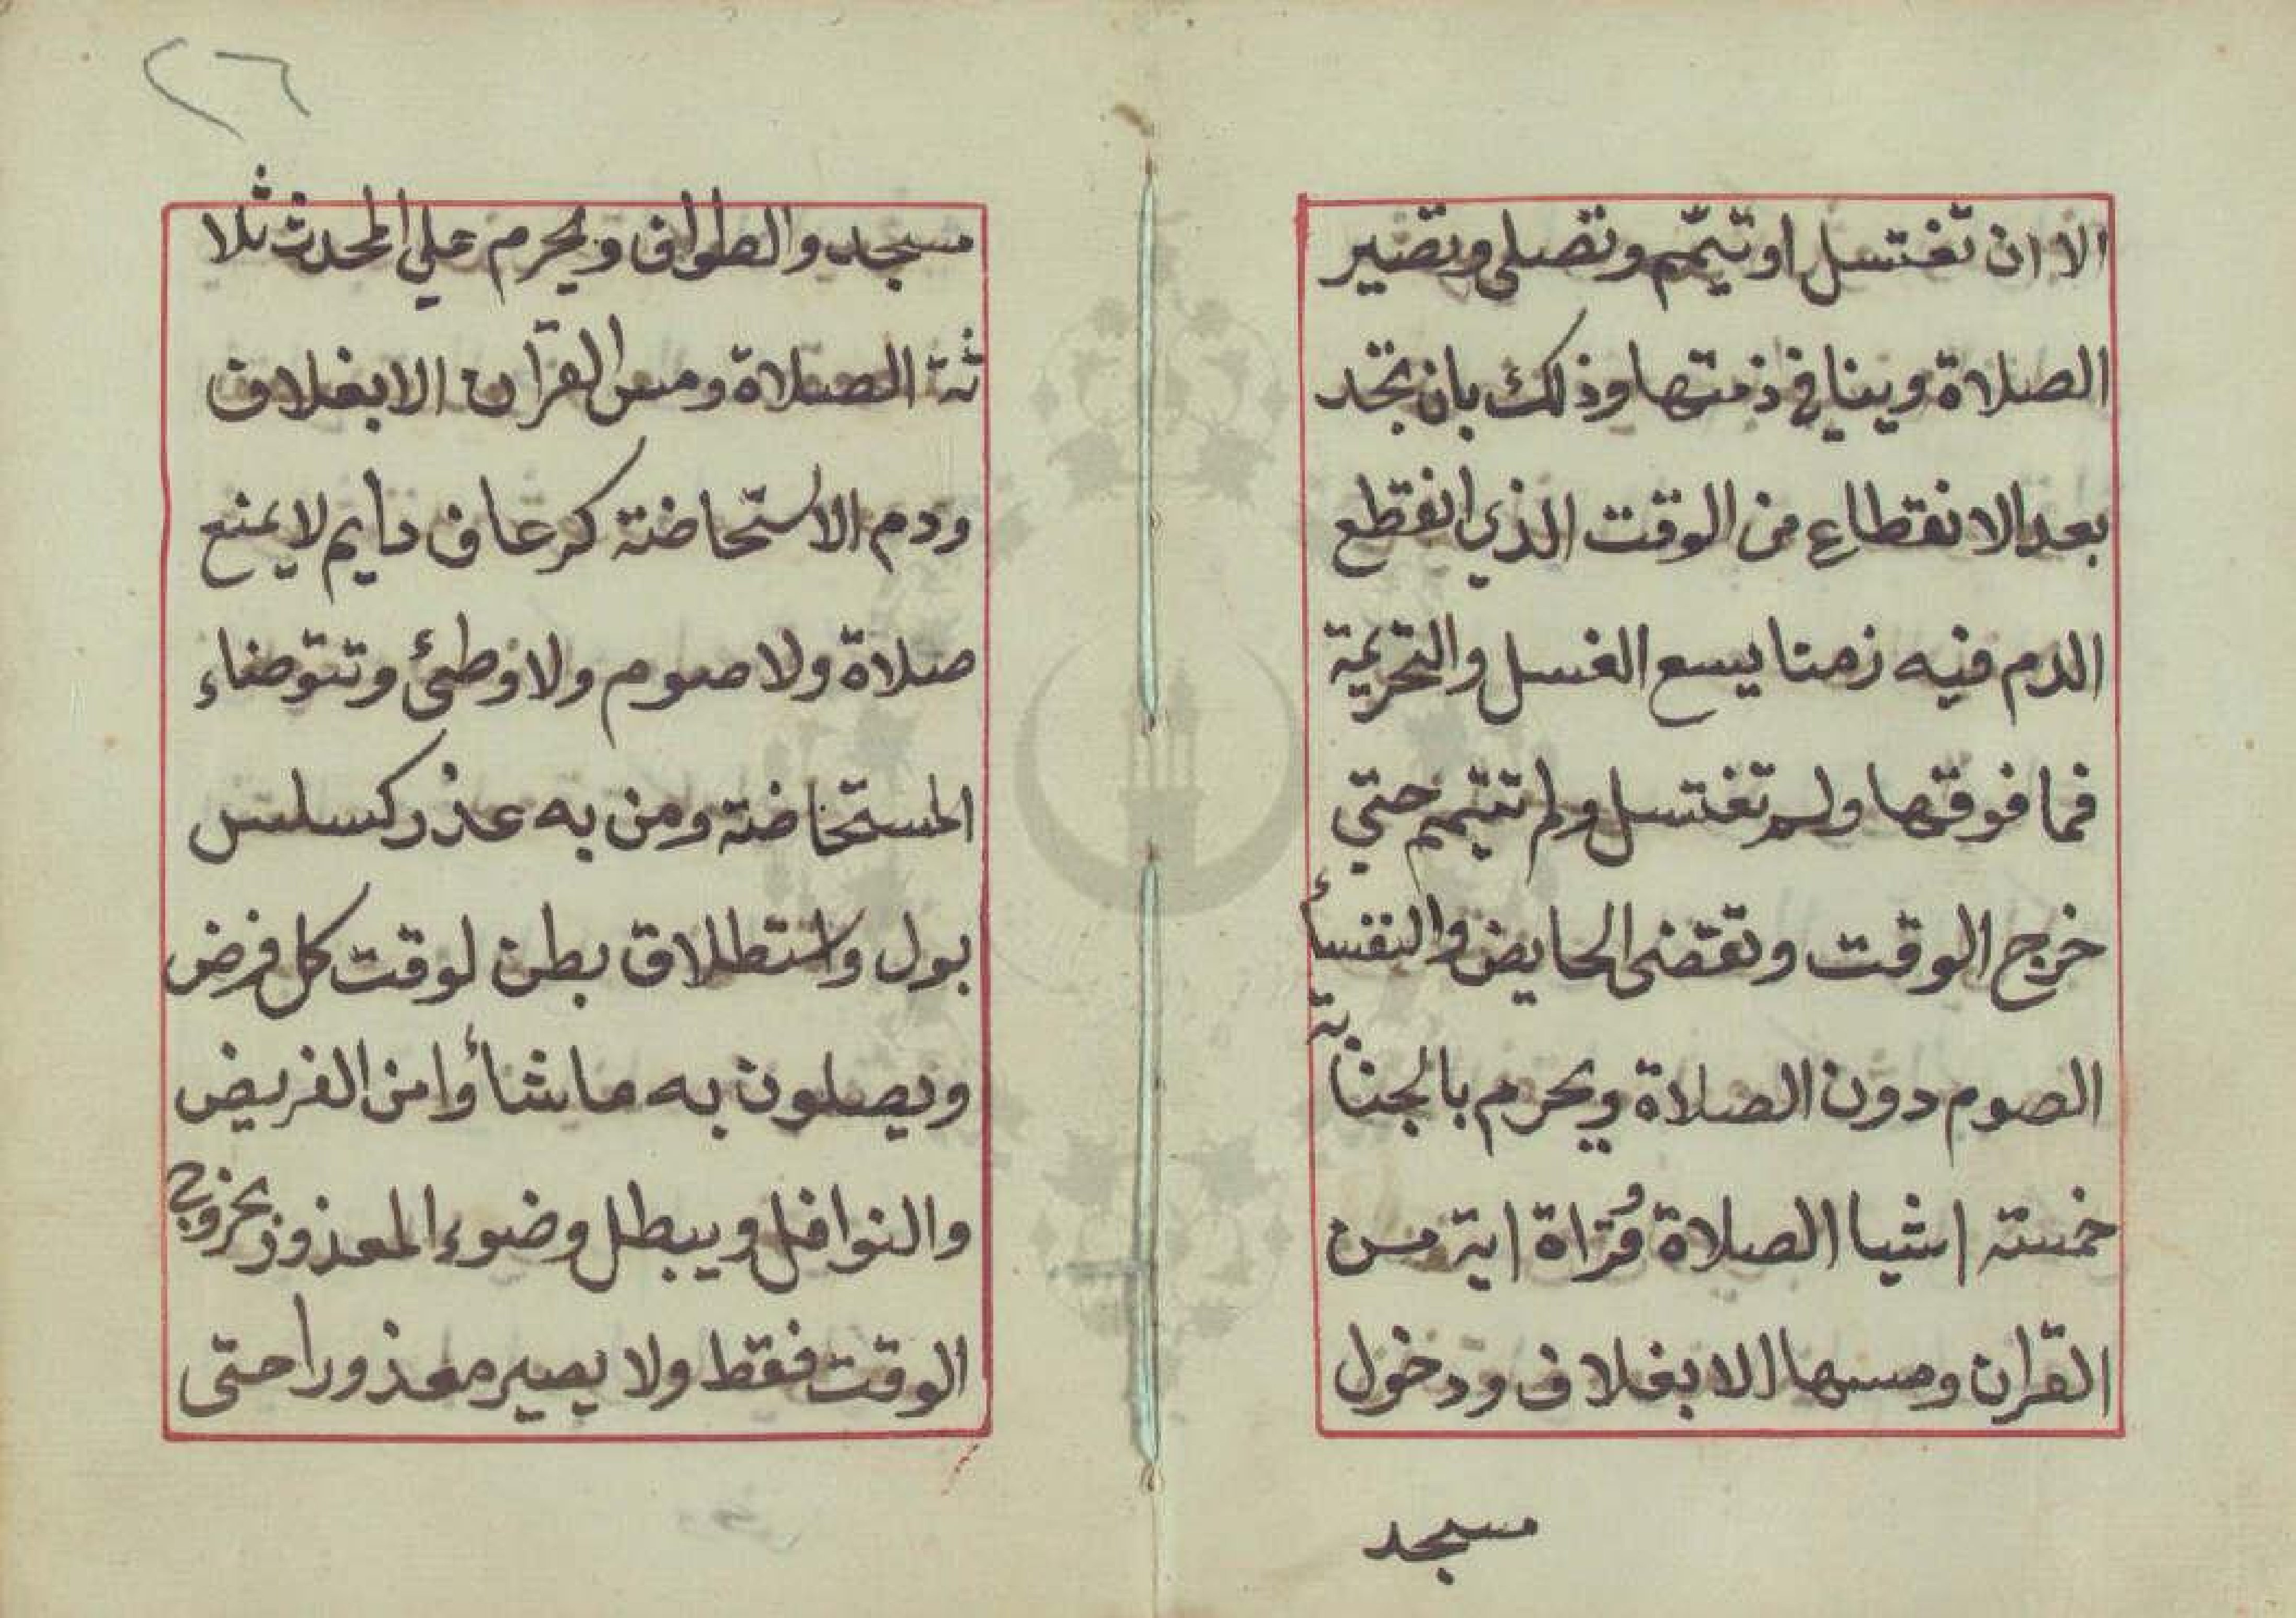 الا ان تغتسل او تيتمم وتصلى وتصير
الصلاة وينا في ذمتها وذلك بان تجد
بعد الانقطاع من الوقت الذي انقطع
الدم فيه زمنا يسع الغسل والتحريمة
فما فوقها ولم تغتسل ولم تتيمم حتي
خرج الوقت وتقضى الحايض والنفسأ
الصوم دون الصلاة ويحرم بالجنابة
خمسته اشيا الصلاة وقراة اية من
القران ومسها الا بغلاف ودخول
مسجد
٢٦
مسجد والطواف ويحرم علي المحدث ثلا
ثة الصلاة ومس القران الا بغلاف
ودم الاستحاضة كرعاف دايم لا يمنع
صلاة ولا صوم ولا وطئ وتتوضاء
المستحاضة ومن به عذر كسلس
بول واستطلاق بطن لوقت كل فرض
ويصلون به ما شأوا من الفريض
والنوافل ويبطل وضوء المعذور بخروج
الوقت فقط ولا يصير معذورا حتى